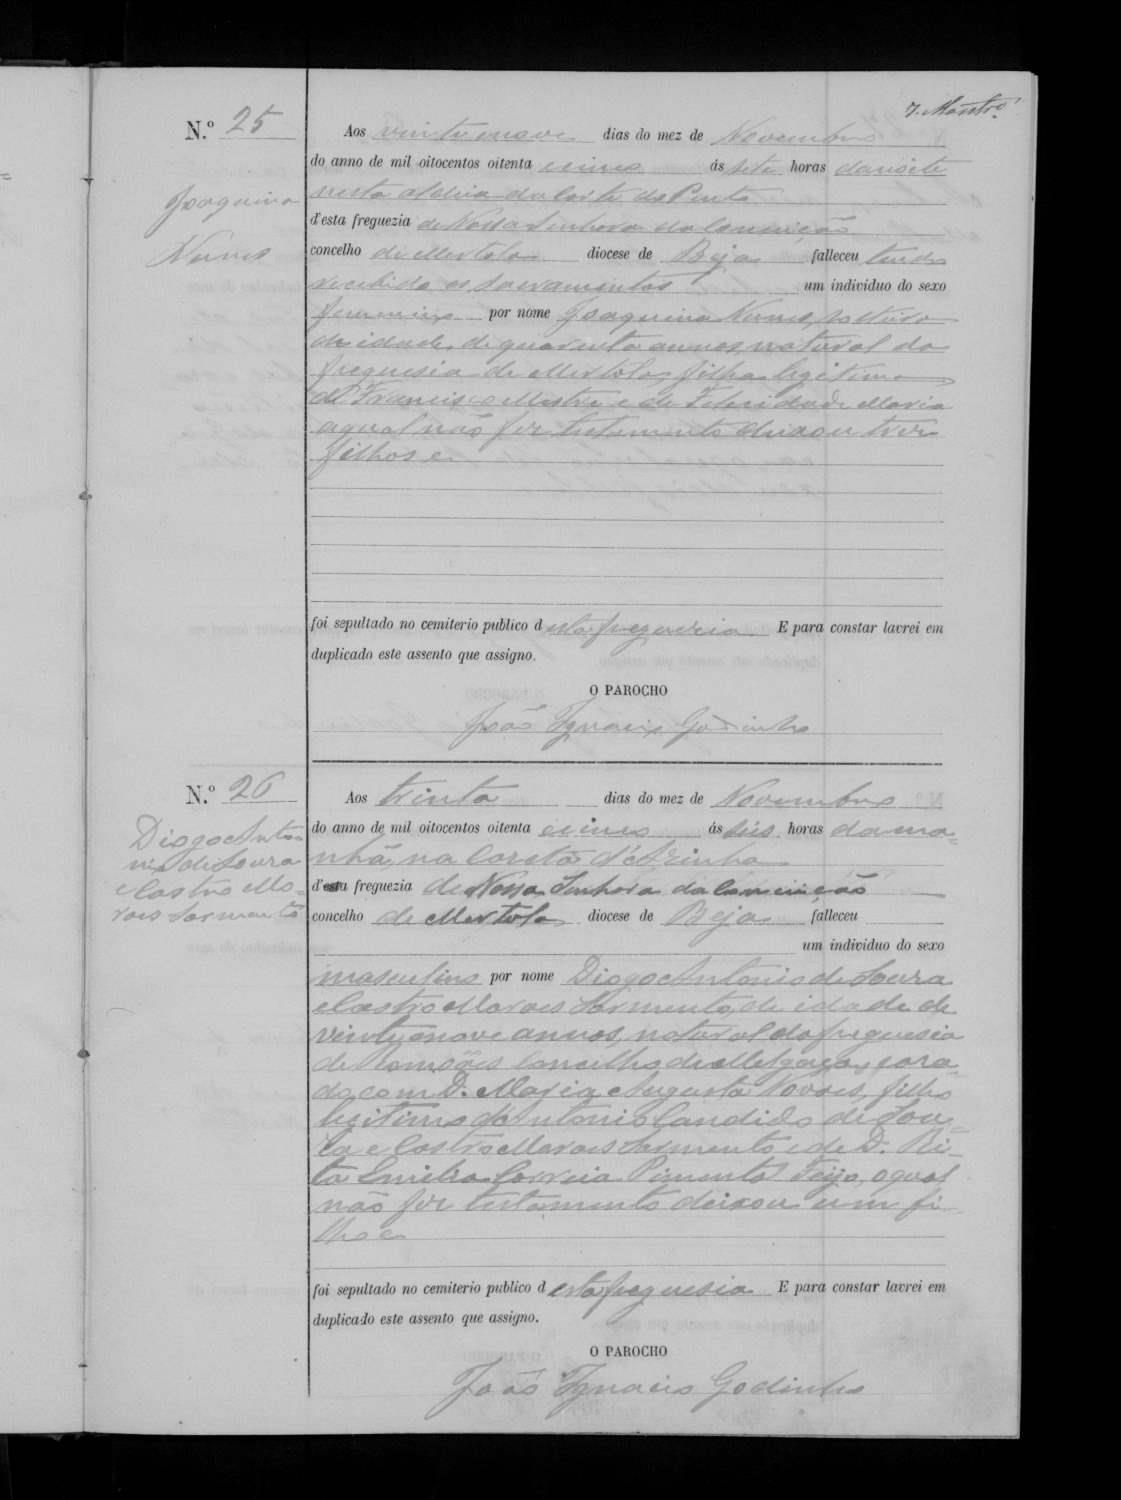 N.º 25
Joaquina
Nunes
Aos vinte nove dias do mez de Novembro
do anno de mil oitocentos oitenta e cinco ás sete horas da noite
nesta aldeia da Corte do Pinto
d'esta freguezia de Nossa Senhora da Conceição
concelho de Mertola diocese de Beja falleceu tendo
recebido os sacramentos um individuo do sexo
femenino por nome Joaquina Nunes, solteira
de idade de quarenta annos, natural da
freguesia de Mertola, filha legitima
de Francisco Mestre e de Felicidade Maria
aqual não fez testamento deixou tres
filhos e
foi sepultado no cemiterio publico d esta freguesia E para constar lavrei em
duplicado este assento que assigno.
O PAROCHO
João Ignacio Godinho
N.º 26
Diogo Anto
nio de Souza
e Castro Mo-
raes Sarmento
Aos trinta dias do mez de Novembro
do anno de mil oitocentos oitenta e cinco ás seis horas da ma=
nhã, na
d'esta freguezia de Nossa Senhora da Conceição
concelho de Mertola diocese de Beja falleceu
um individuo do sexo
masculino por nome Diogo Antonio de Souza
e Castro Moraes Sarmento, de idade de
vinte e nove annos, natural da freguesia
de Remoães Concelho de Melgaço, caza-
do com D. Maria Augusta Novaes, filho
legitimo d'Antonio Candido de Sou-
za e Castro Moraes Sarmento e de D. Ri-
ta Emilia Correia Pimenta Feijo, o qual
não fez testamento deixou um fi-
lho e
foi sepultado no cemiterio publico d esta freguesia E para constar lavrei em
duplicado este assento que assigno.
O PAROCHO
João Ignacio Godinho